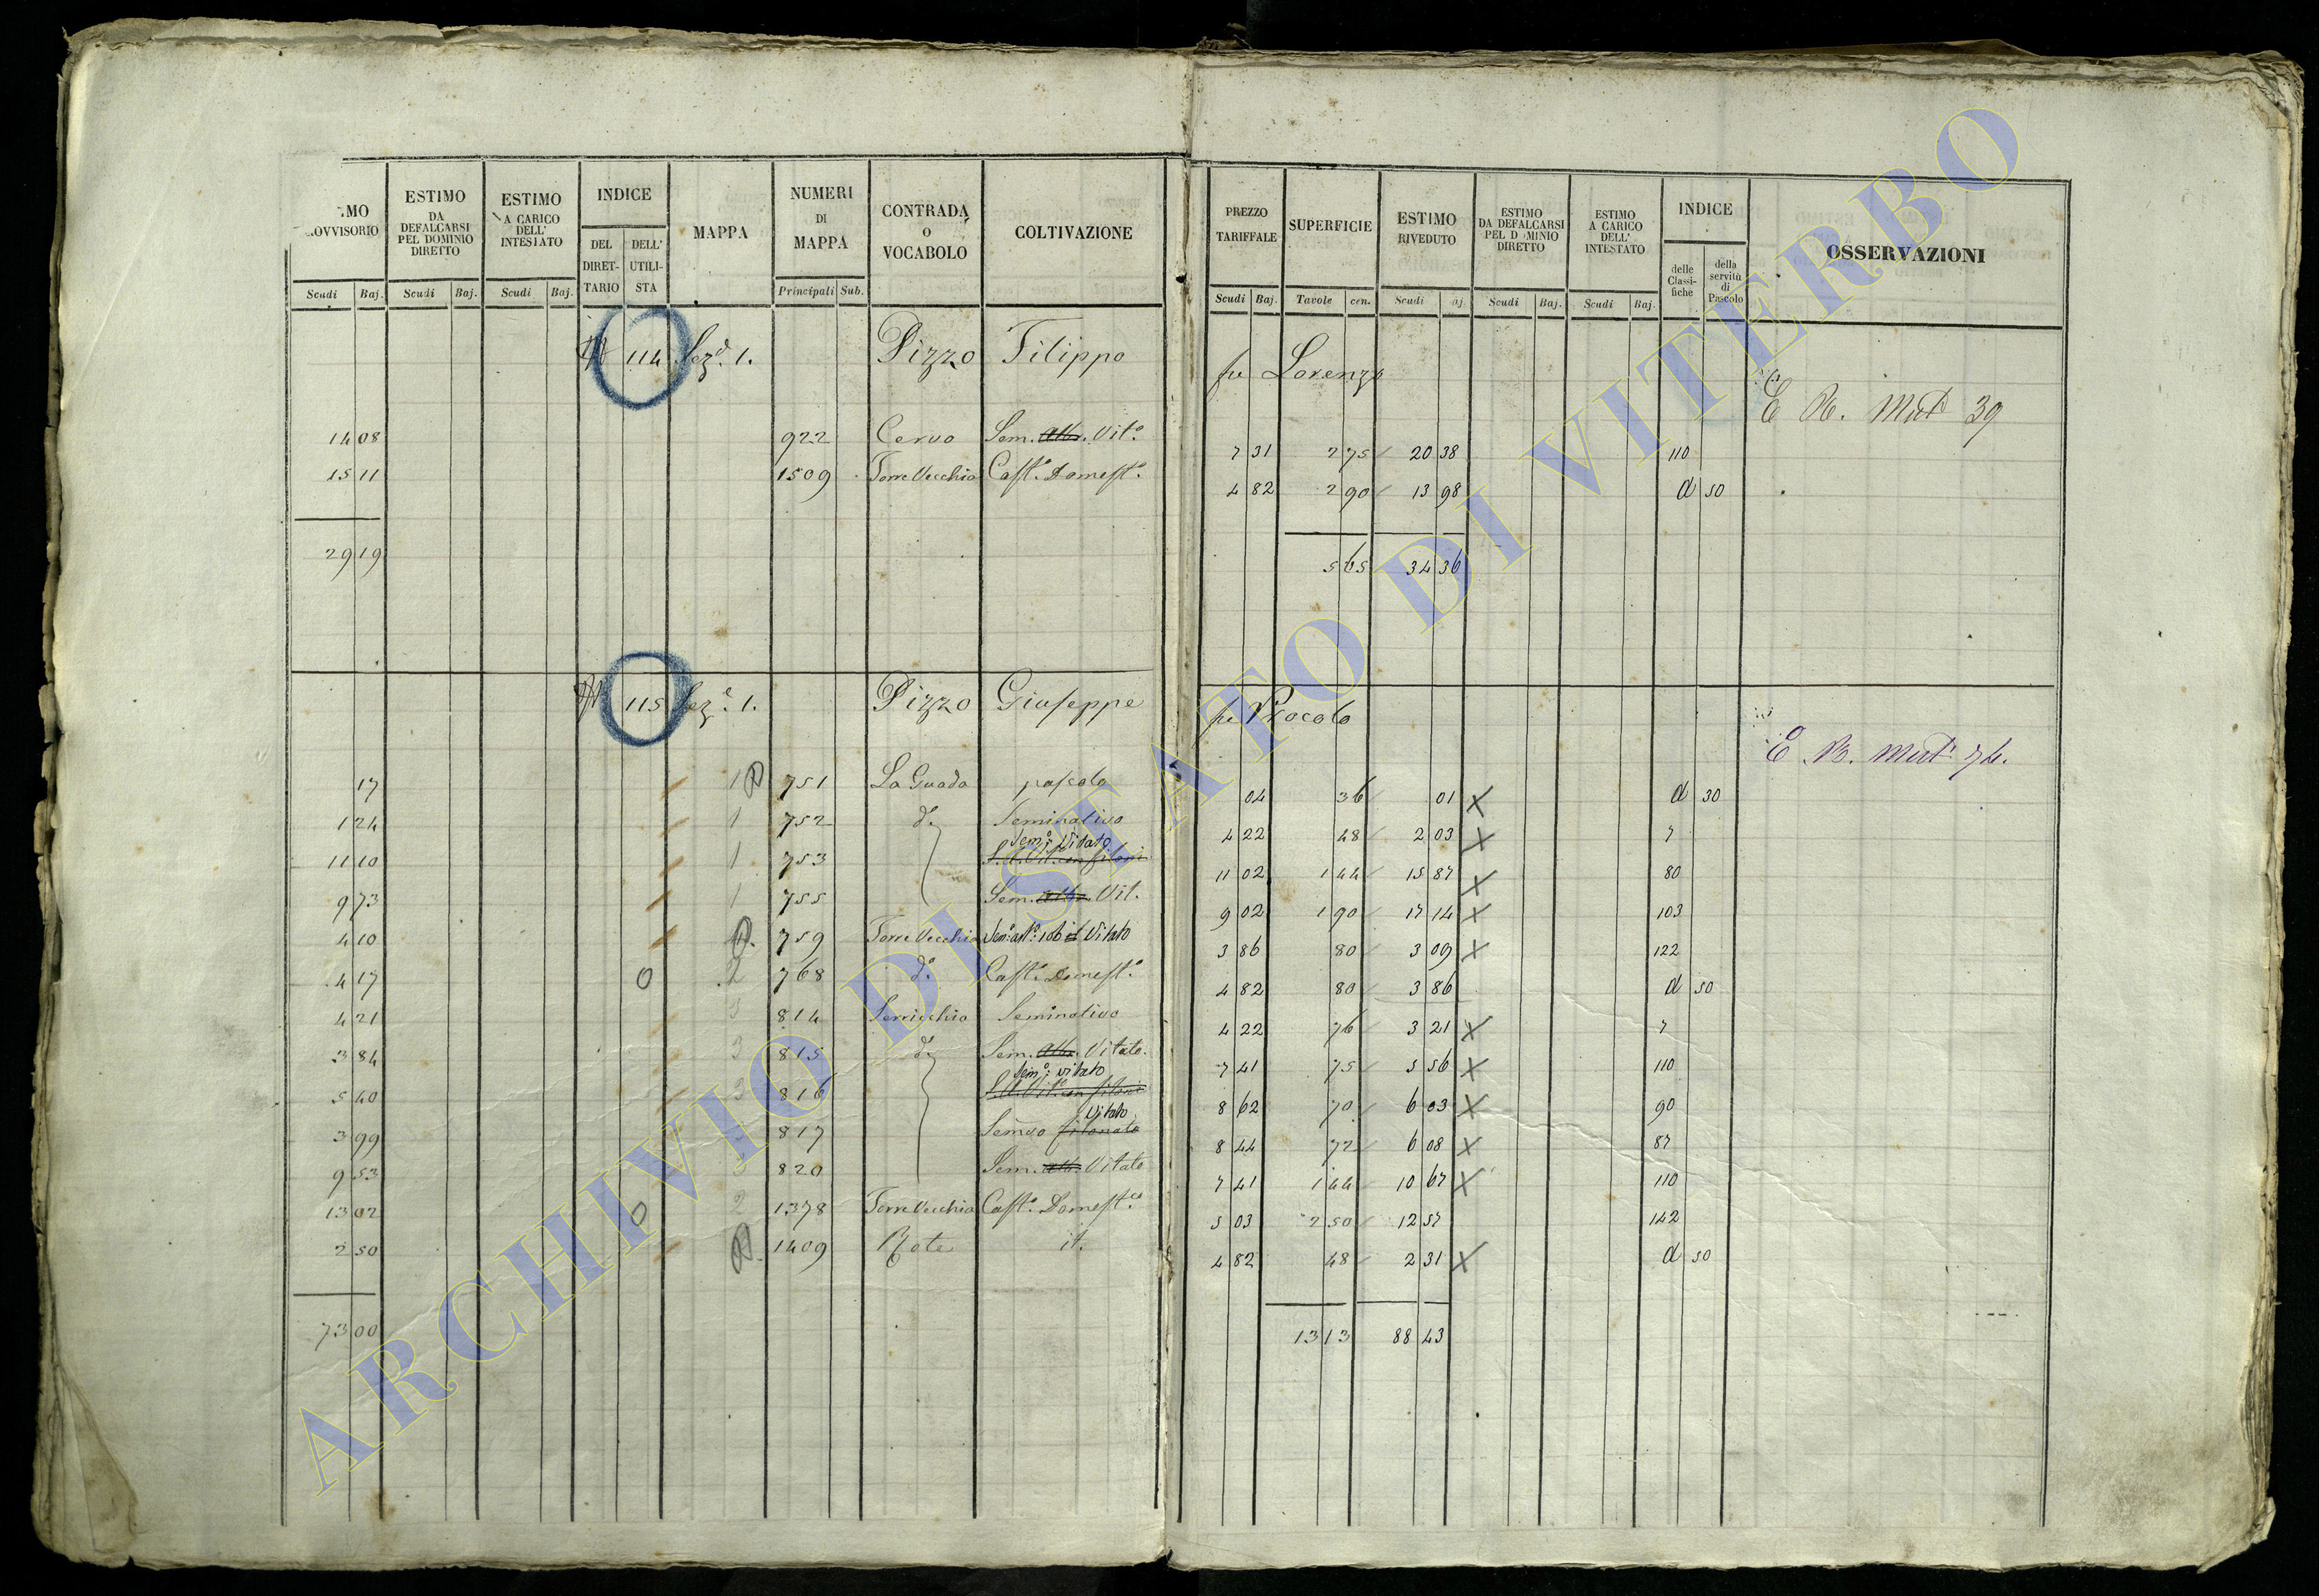 MO OVVISORIO | ESTIMO DA DEFALCARSI PEL DOMINIO DIRETTO | ESTIMO A CARICO DELL' INTESTATO | INDICE | MAPPA | NUMERI DI MAPPA | CONTRADA o VOCABOLO | COLTIVAZIONE | PREZZO TARIFFALE | SUPERFICIE | ESTIMO RIVEDUTO | ESTIMO DA DEFALCARSI PEL DOMINIO DIRETTO | ESTIMO A CARICO DELL' INTESTATO | INDICE | OSSERVAZIONI
DEL DIRETTARIO | DELL' UTILISTA | delle Classifiche | della servitù di Pascolo
Scudi | Baj. | Scudi | Baj. | Scudi | Baj. | Principali | Sub. | Scudi | Baj. | Tavole | cen. | Scudi | aj. | Scudi | Baj. | Scudi | Baj.
114 Sez.e 1. Pizzo Filippo fu Lorenzo
E R. Mut 39
14 08 922 Cervo Sem. Alb. Vit.o 7 31 2 75 20 38 110
15 11 1509 Torre Vecchia Cast.o Domest.o 4 82 2 90 13 98 d 50
29 19 5 65 34 36
115 Sez.e 1. Pizzo Giuseppe fu Procolo
E R. Mut 74.
17 1 751 La Guada pascolo 04 36 01 X d 30
1 24 1 752 d.o Seminativo 4 22 48 2 03 X 7
Sem.o Vitato
11 10 1 753 S. A. Vit.o con filoni 11 02 1 44 15 87 X 80
9 73 1 755 Sem. alb. Vit. 9 02 1 90 17 14 X 103
4 10 759 Torre Vecchia Vitato 3 86 80 3 09 X 122
4 17 0 2 768 d.o Cast.o Domest.o 4 82 80 3 86 d 50
4 21 3 814 Serricchia Seminativo 4 22 76 3 21 X 7
3 84 3 815 d.o Sem. Alb. Vitato. 7 41 75 5 56 X 110
Sem.o vitato
5 40 3 816 S. A. Vit.o con filoni 8 62 70 6 03 X 90
Vitato
3 99 3 817 Semvo filonato 8 44 72 6 08 X 87
9 53 3 820 Sem. alb. Vitato 7 41 1 44 10 67 X 110
13 02 0 2 1378 Torre Vecchia Cast.o Domest.co 5 03 2 50 12 57 142
2 50 1409 Rote it. 4 82 48 2 31 X d 50
73 00 13 13 88 43
ARCHIVIO DI STATO DI VITERBO